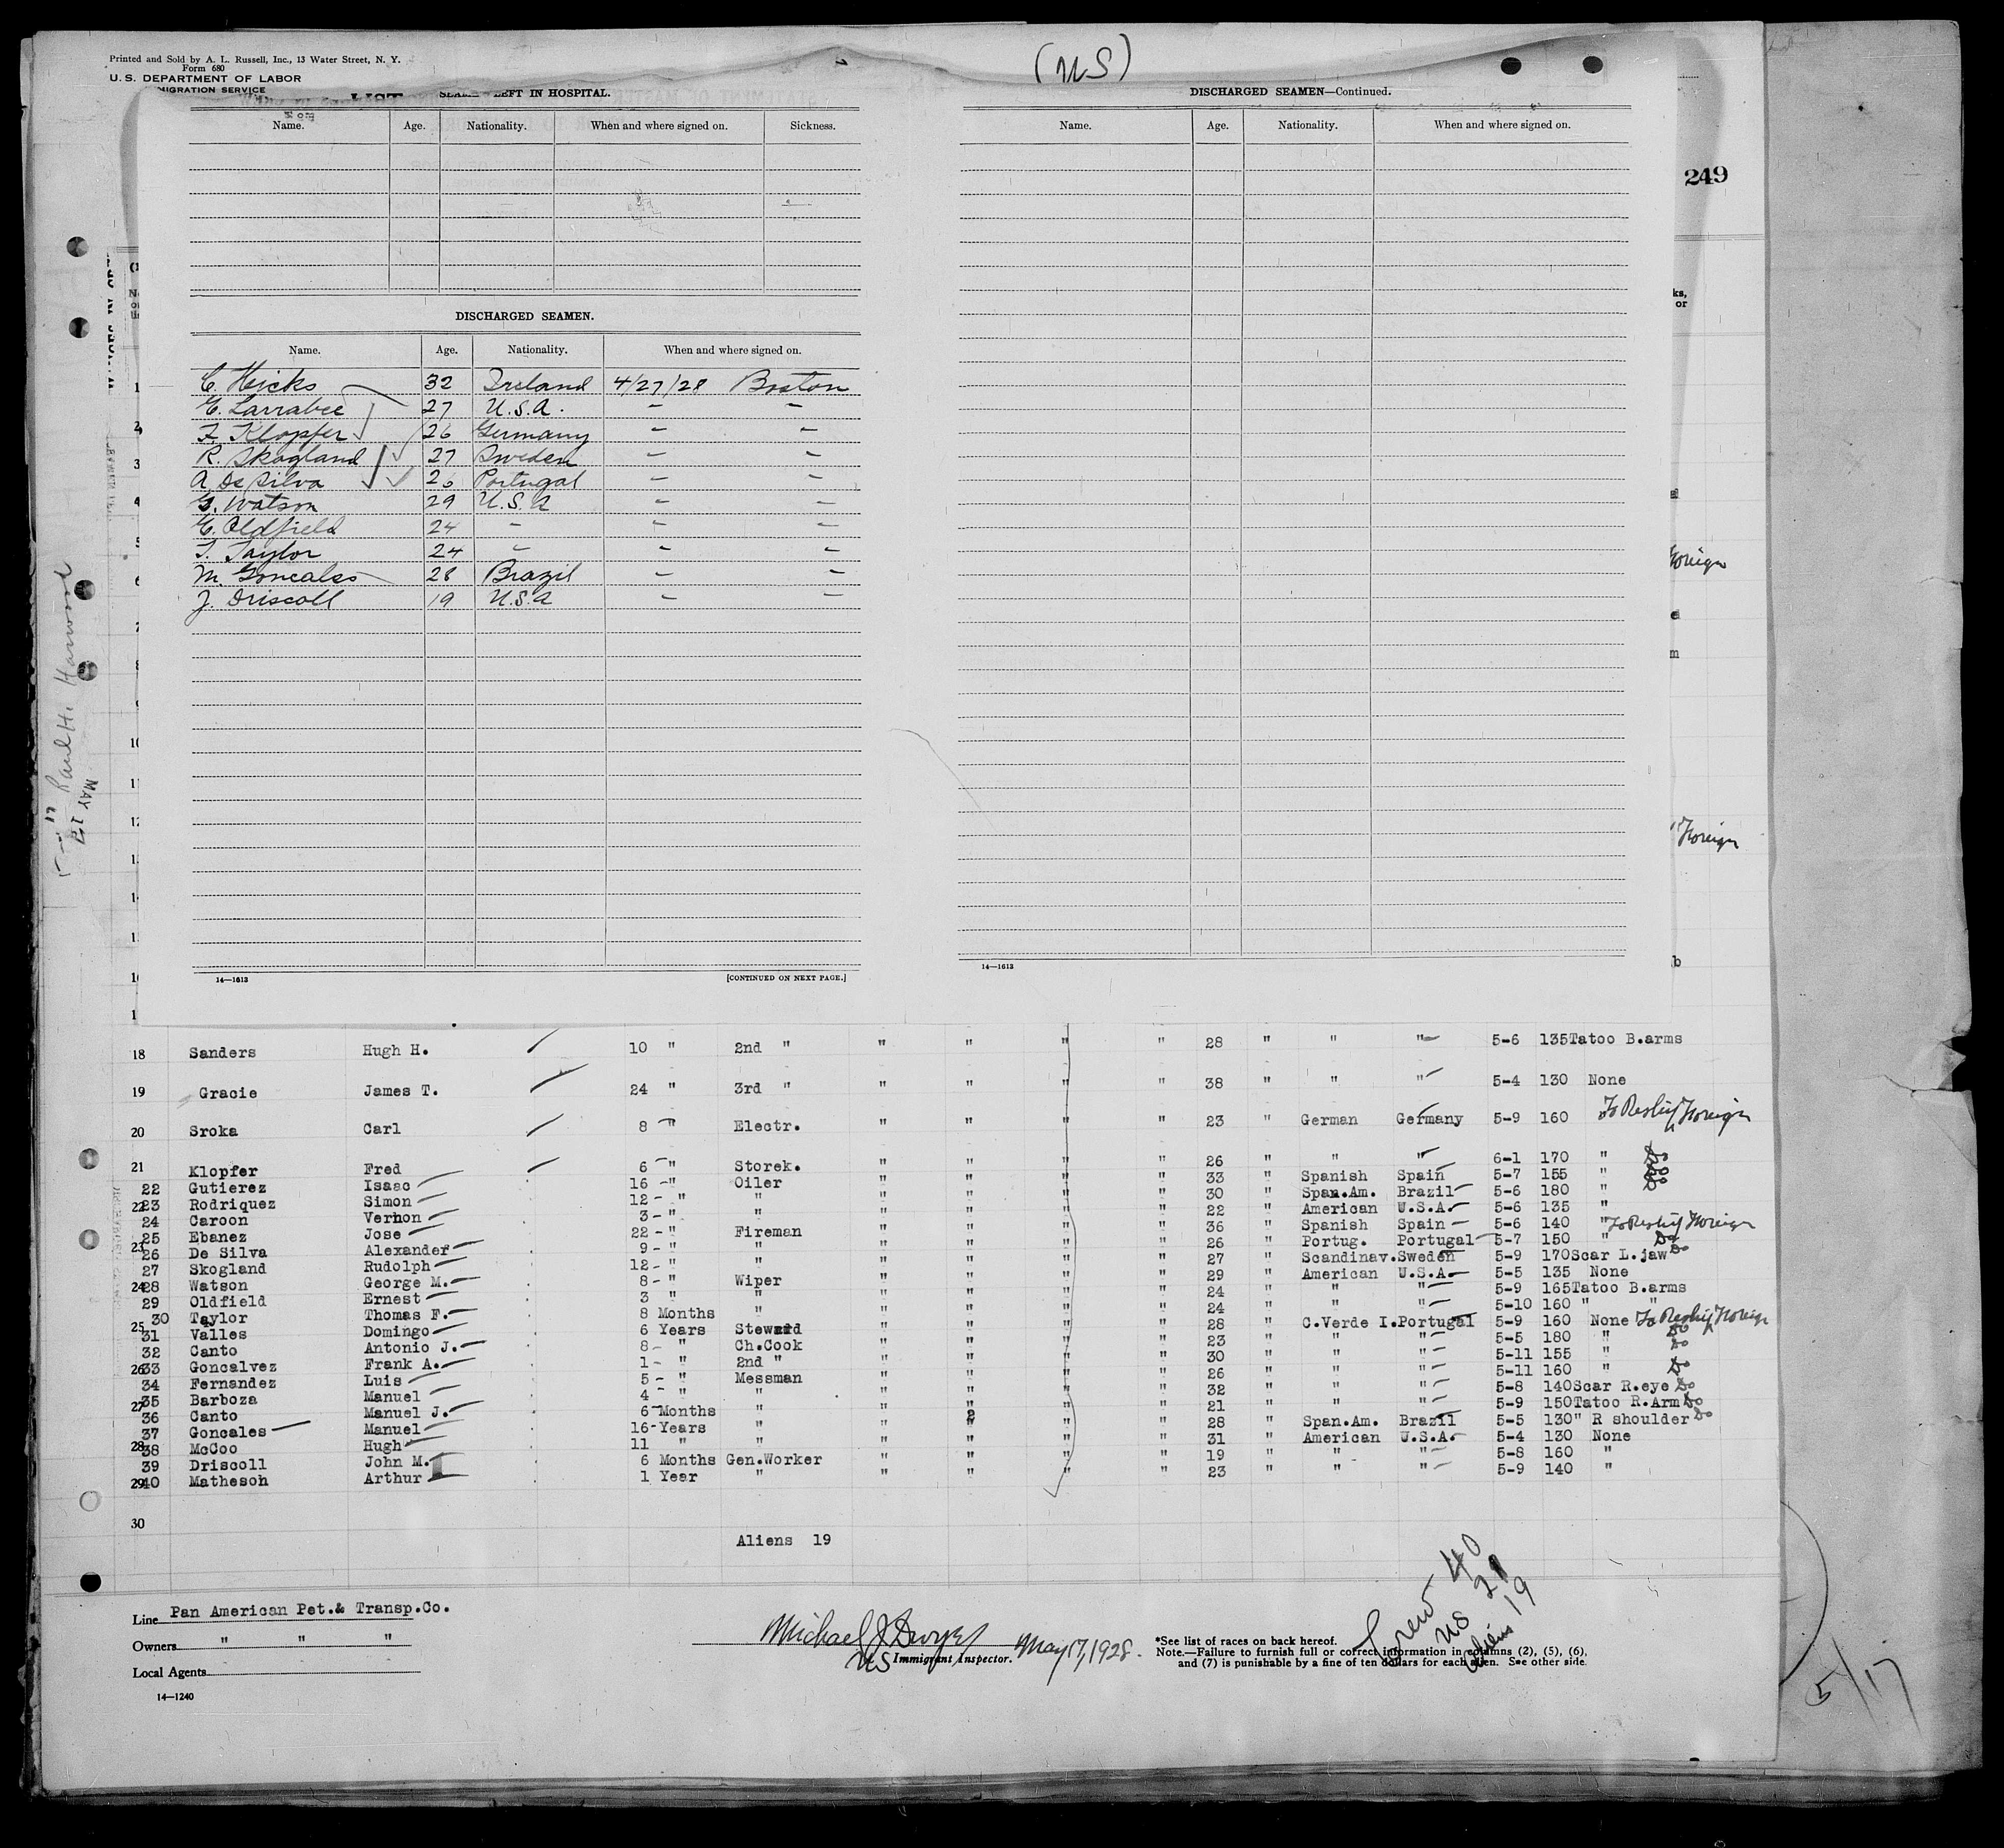 (US)
Printed and Sold by A. L. Russell, Inc., 13 Water Street, N. Y.
Form 680
U. S. DEPARTMENT OF LABOR
MIGRATION SERVICE
LIST
LEFT IN HOSPITAL.
Name. Age. Nationality. When and where signed on. Sickness.
DISCHARGED SEAMEN—Continued.
Name. Age. Nationality. When and where signed on.
249
DISCHARGED SEAMEN.
Name. Age. Nationality. When and where signed on.
C. Hicks 32 Ireland 4/27/28 Boston
E. Larrabee 27 U.S.A. – –
F. Klopfer 26 Germany – –
R. Skogland 27 Sweden – –
A De Silva 26 Portugal – –
G. Watson 29 U.S.A – –
E. Oldfield 24 – – –
T. Taylor 24 – – –
M. Goncales 28 Brazil – –
J. Driscoll 19 U.S.A – –
14—1613 [CONTINUED ON NEXT PAGE.]
14—1613
Foreign
Foreign
Paul H. Harwood
MAY 17
18 Sanders Hugh H. 10 " 2nd " " " " " 28 " " " 5-6 135 Tatoo B.arms
19 Gracie James T. 24 " 3rd " " " " " 38 " " " 5-4 130 None
20 Sroka Carl 8 " Electr. " " " " 23 " German Germany 5-9 160 " To Reship Foreign
21 Klopfer Fred 6 " Storek. " " " " 26 " " " 6-1 170 " Do
22 Gutierez Isaac 16 " Oiler " " " " 33 " Spanish Spain 5-7 155 " Do
23 Rodriquez Simon 12 " " " " " " 30 " Span.Am. Brazil 5-6 180 " Do
24 Caroon Vernon 3 " " " " " " 22 " American U.S.A. 5-6 135 "
25 Ebanez Jose 22 " Fireman " " " " 36 " Spanish Spain 5-6 140 " To Reship Foreign
26 De Silva Alexander 9 " " " " " " 26 " Portug. Portugal 5-7 150 " Do
27 Skogland Rudolph 12 " " " " " " 27 " Scandinav. Sweden 5-9 170 Scar L.jaw Do
28 Watson George M. 8 " Wiper " " " " 29 " American U.S.A. 5-5 135 None
29 Oldfield Ernest 3 " " " " " " 24 " " " 5-9 165 Tatoo B.arms
30 Taylor Thomas F. 8 Months " " " " " 24 " " " 5-10 160 " "
31 Valles Domingo 6 Years Steward " " " " 28 " C.Verde I. Portugal 5-9 160 None To Reship Foreign
32 Canto Antonio J. 8 " Ch.Cook " " " " 23 " " " 5-5 180 " Do
33 Goncalvez Frank A. 1 " 2nd " " " " " 30 " " " 5-11 155 " Do
34 Fernandez Luis 5 " Messman " " " " 26 " " " 5-11 160 " Do
35 Barboza Manuel 4 " " " " " " 32 " " " 5-8 140 Scar R.eye Do
36 Canto Manuel J. 6 Months " " " " " 21 " " " 5-9 150 Tatoo R.Arm Do
37 Goncales Manuel 16 Years " " " " " 28 " Span.Am. Brazil 5-5 130 " R shoulder Do
38 McCoo Hugh 11 " " " " " " 31 " American U.S.A. 5-4 130 None
39 Driscoll John M. 6 Months Gen.Worker " " " " 19 " " " 5-8 160 "
40 Matheson Arthur 1 Year " " " " " 23 " " " 5-9 140 "
30
Aliens 19
Crew 40
US 21
Aliens 19
Line Pan American Pet.& Transp.Co.
Owners " " "
Local Agents
14—1240
Michael J Dwyer May 17, 1928.
US Immigrant Inspector.
*See list of races on back hereof.
Note.—Failure to furnish full or correct information in columns (2), (5), (6),
and (7) is punishable by a fine of ten dollars for each alien. See other side.
5/17